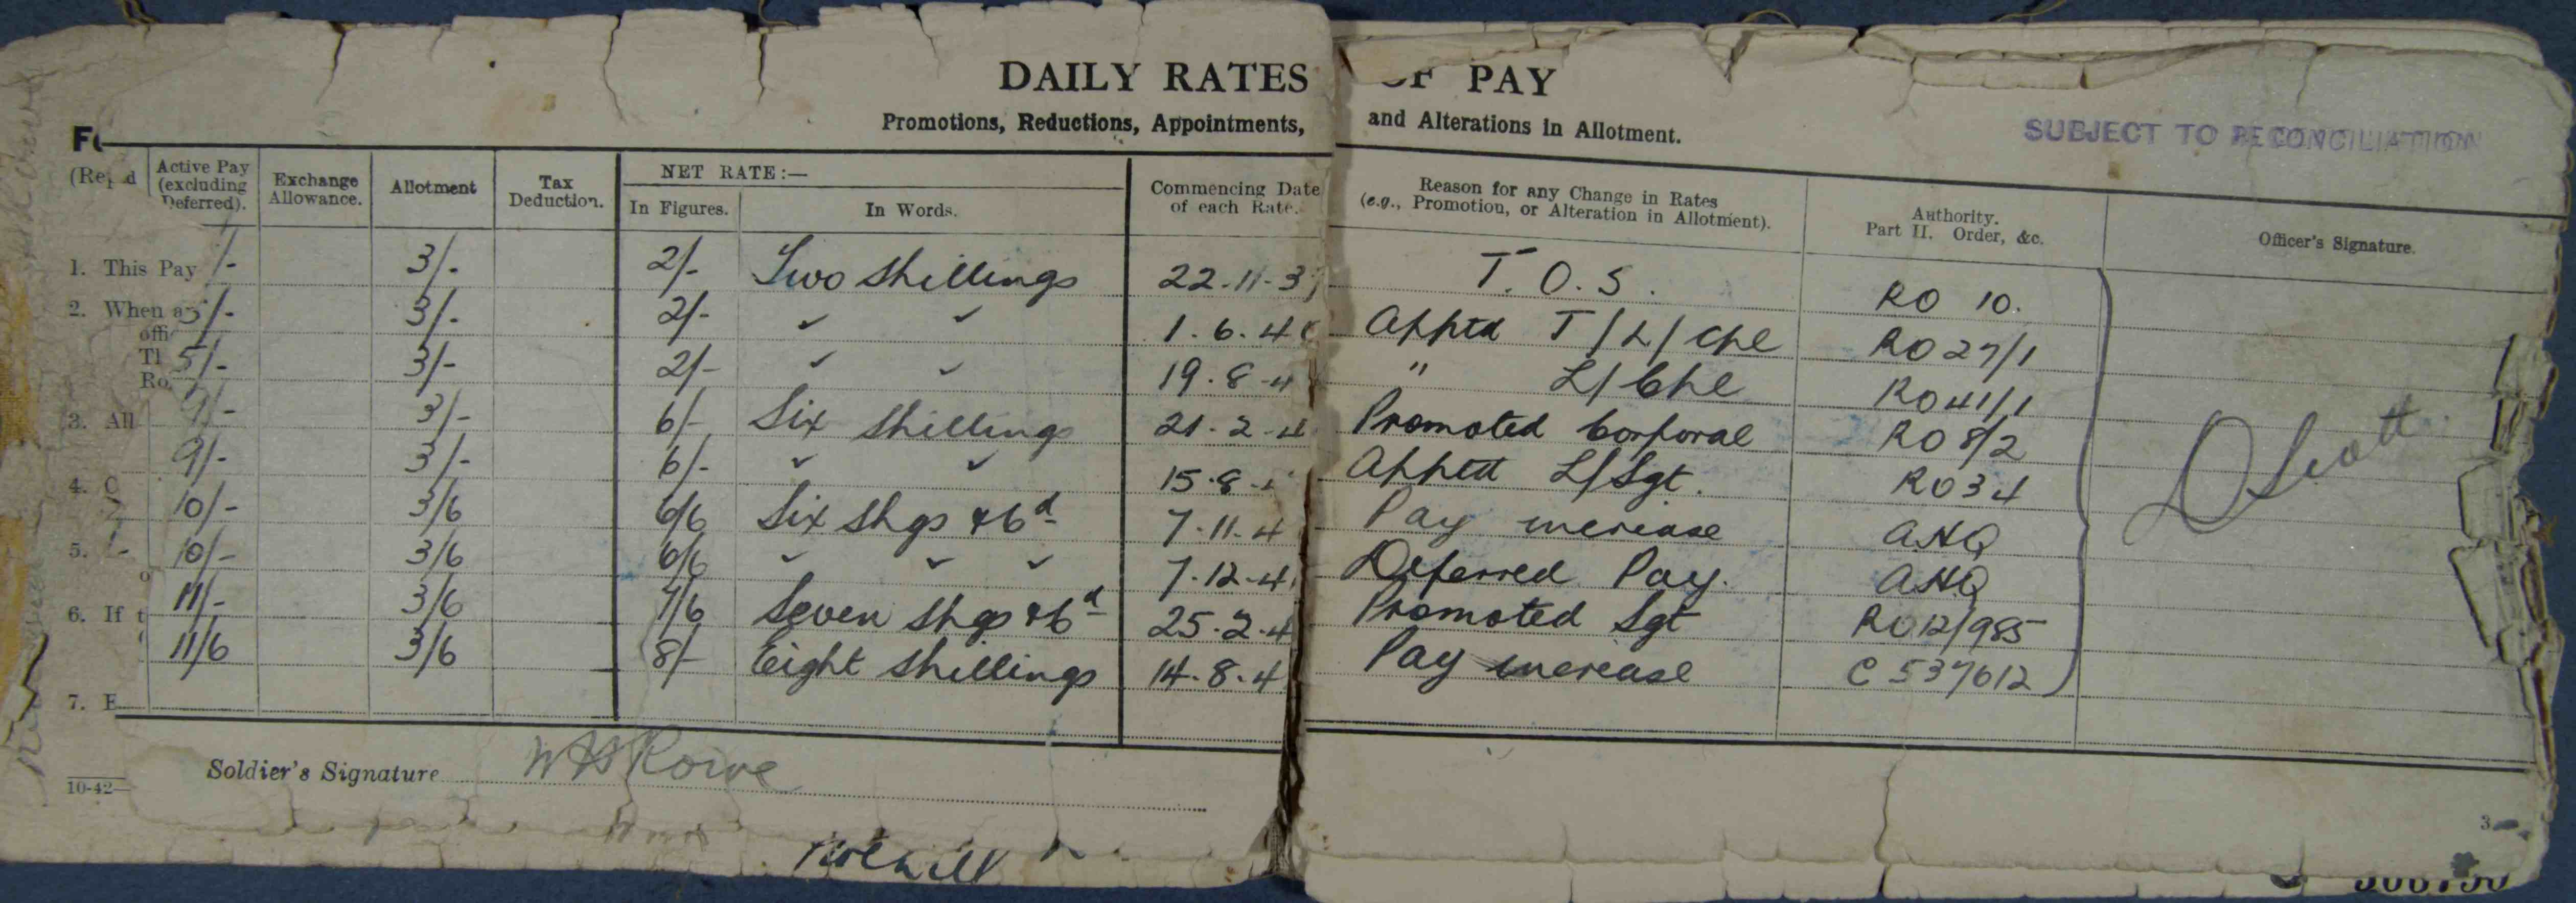 DAILY RATES OF PAY
Promotions, Reductions, Appointments, and Alterations in Allotment.
SUBJECT TO RECONCILIATION
Active Pay (excluding Deferred). Exchange Allowance. Allotment Tax Deduction. NET RATE:— In Figures. In Words. Commencing Date of each Rate. Reason for any Change in Rates (e.g., Promotion, or Alteration in Allotment). Authority. Part II. Order, &c. Officer's Signature.
1. This Pay /- 3/- 2/- Two Shillings 22.11.3 T.O.S. RO 10.
2. When 5/- 3/- 2/- ✓ ✓ 1.6.4 Apptd T/L/Cpl RO 27/1
5/- 3/- 2/- ✓ ✓ 19.8.4 " L/Cpl RO 41/1
3. All 9/- 3/- 6/- Six Shillings 21.2.4 Promoted Corporal RO 8/2
9/- 3/- 6/- ✓ ✓ 15.8. Apptd L/Sgt. RO 34
4. 10/- 3/6 6/6 Six Shgs & 6d 7.11.4 Pay increase AHQ
5. 10/- 3/6 6/6 ✓ ✓ ✓ 7.12.4 Deferred Pay. AHQ
6. If 11/- 3/6 7/6 Seven Shgs & 6d 25.2.4 Promoted Sgt RO 12/985
11/6 3/6 8/- Eight Shillings 14.8.4 Pay increase C 537612
D Scott
7.
Soldier's Signature W H Rowe
10-42—
3